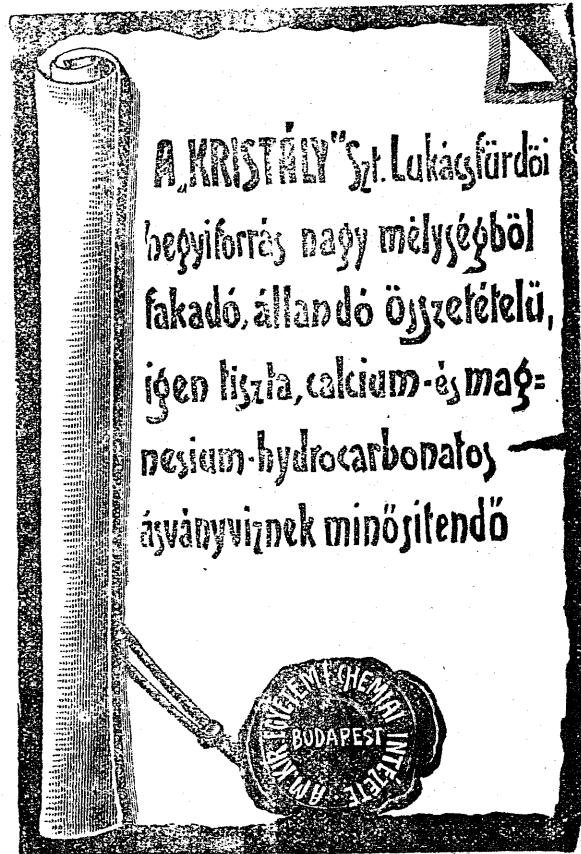 A „KRISTÁLY” Szt. Lukácsfürdői
hegyiforrás nagy mélységből
fakadó, állandó összetételű,
igen tiszta, calcium-és mag=
nesium-hydrocarbonatos
ásványviznek minősitendő
A M. KIR. EGYETEM I. CHEMIAI INTÉZETE
BUDAPEST